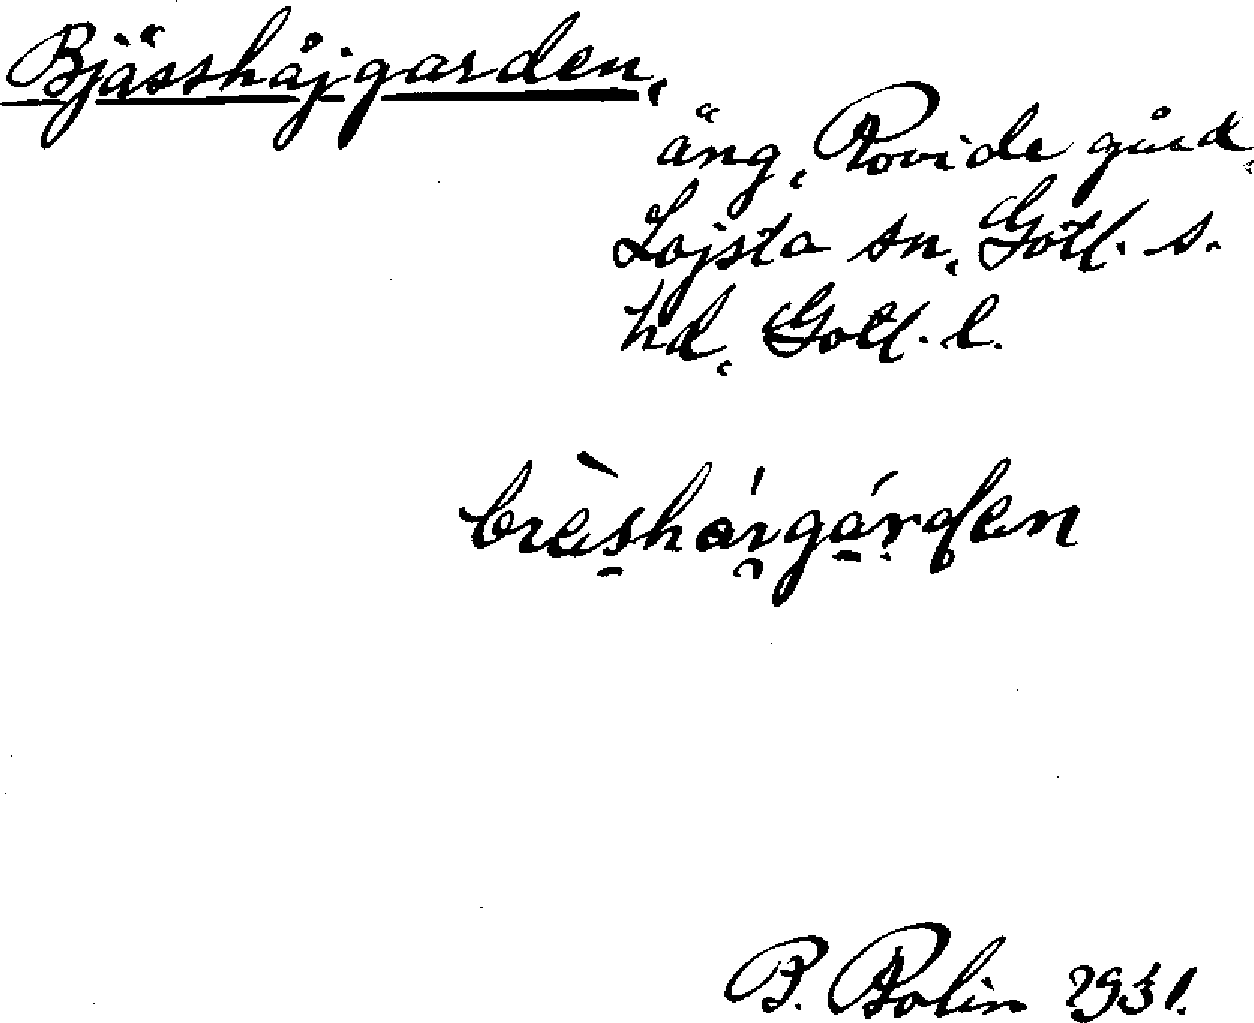 Bjässhåjgarden,
äng, Rovide gård,
Lojsta sn, Gotl. s.
hd, Gotl. l.
B. Bolin 1931.